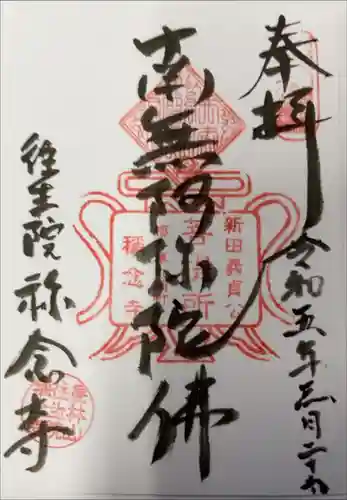 奉拝
令和五年三月二十九
南無阿弥陀佛
新田義貞公
菩提所
稱念寺
往生院 称念寺